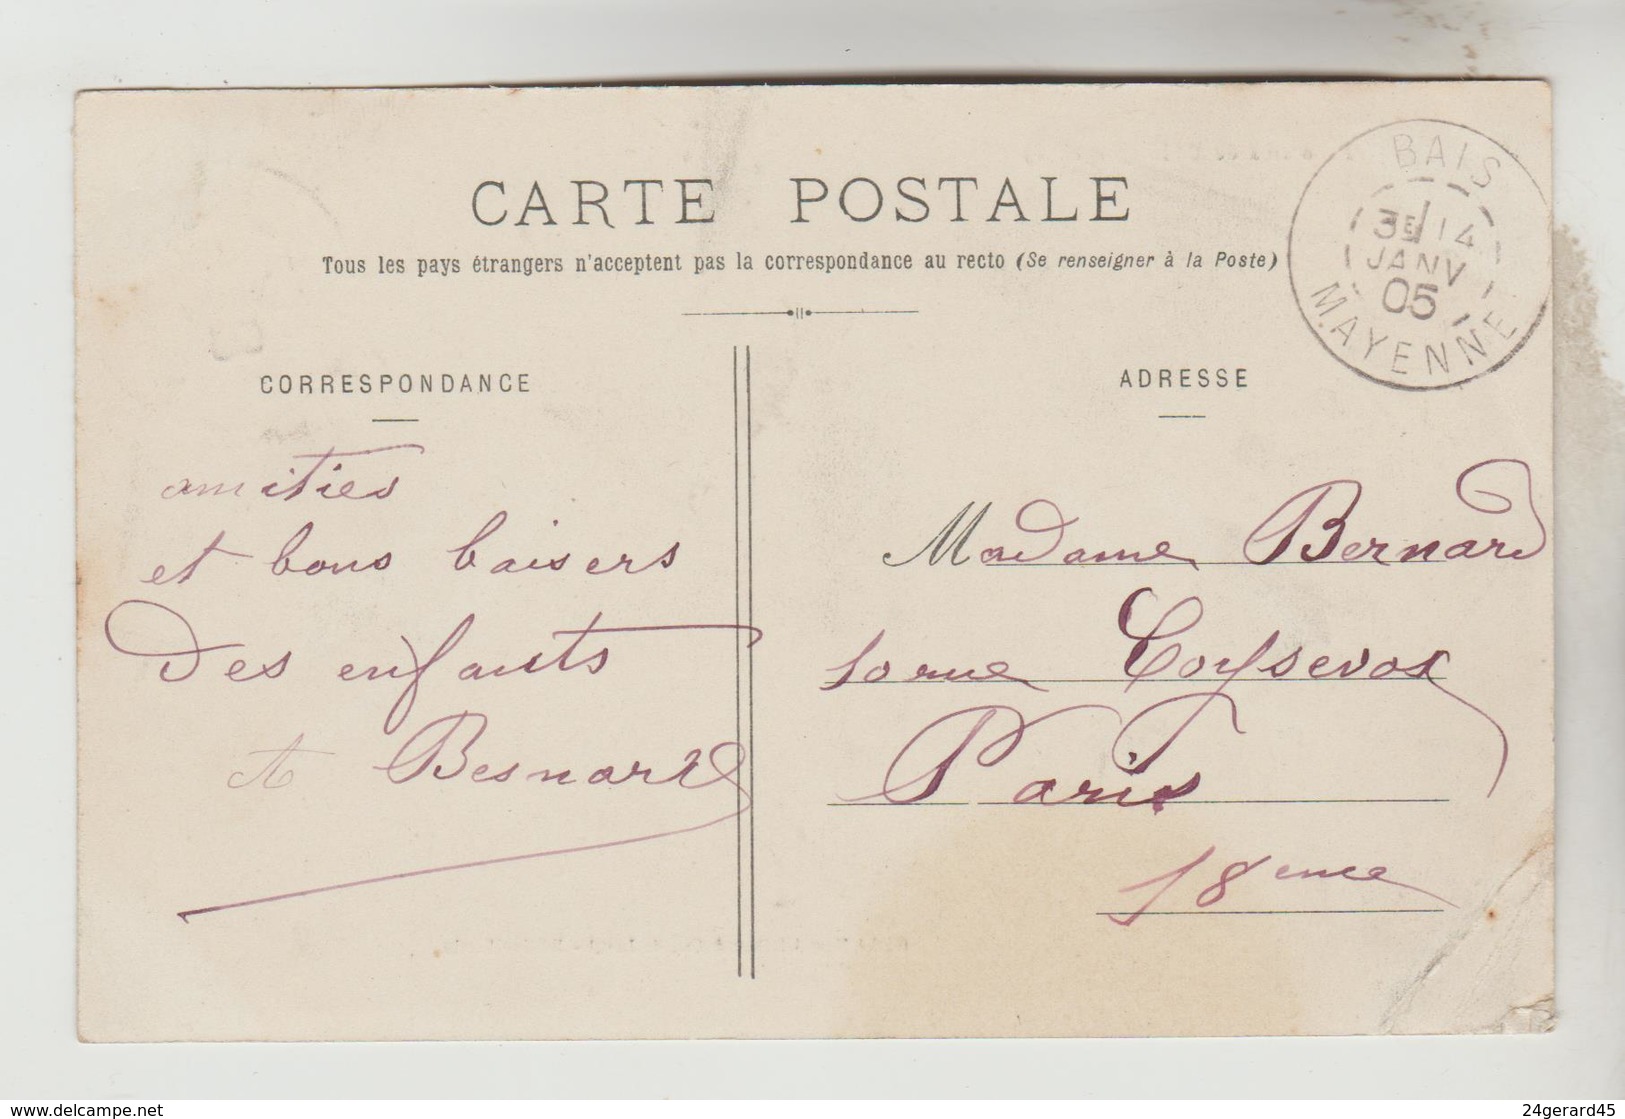 CARTE POSTALE
Tous les pays étrangers n'acceptent pas la correspondance au recto (Se renseigner à la Poste)
BAIS
3E 14
JANV
05
MAYENNE
CORRESPONDANCE
ADRESSE
amitiés
et bons baisers
des enfants
A Besnard
Madame Bernard
10 rue Coysevox
Paris
18eme
www.delcampe.net
24gerard45